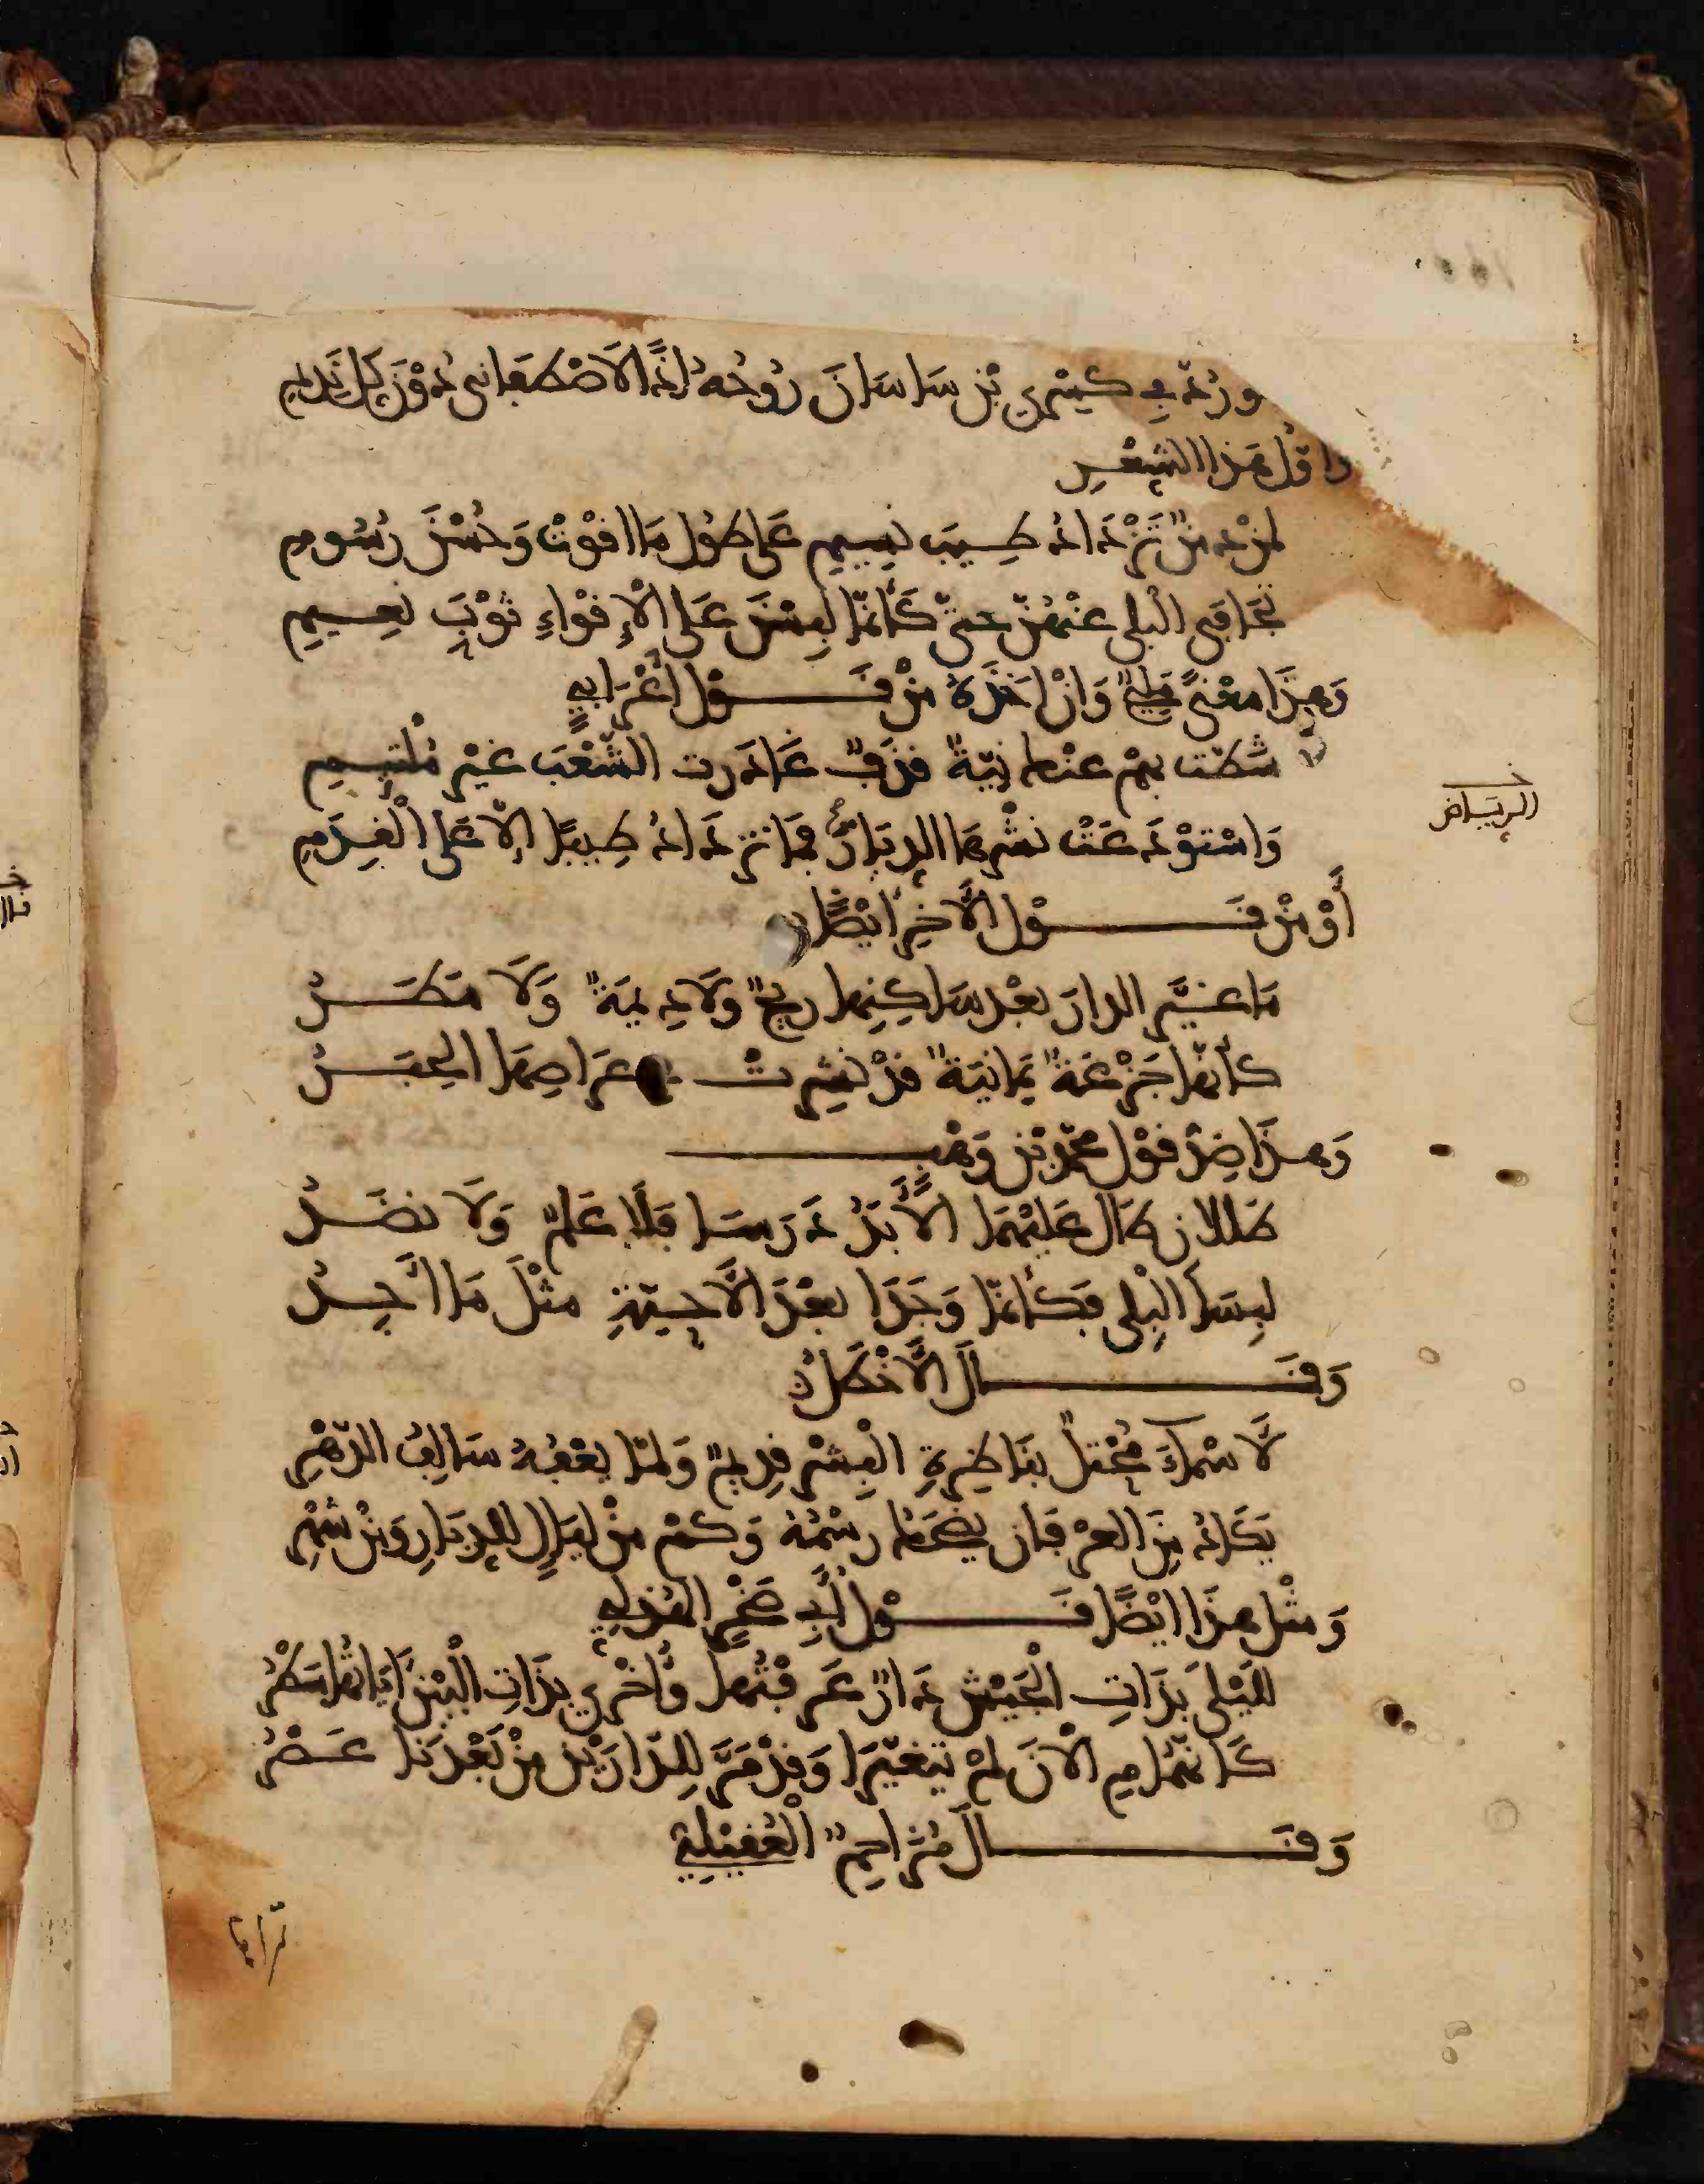 ورد في كسرى بن ساسان روحه إذًا لاصطفاني دون كل نديم
وأول هذا الشعر
لمن دمن تزداد طيب نسيم على طول ما أقوت وحسن رسوم
تجافى البلى عنهن حتى كأنما لبسن على الإقواء ثوب نعيم
وهذا معنًى مليح وإن أخذه من قول أعرابي
شطت بهم عنك نية قذف غادرت الشعب غير ملتئم
واستودعت نشرها الديار فما تزداد طيبًا إلا على القدم
الرياض
أو من قول الآخر أيضًا
ما غير الدار بعد ساكنها ريح ولا ديمة ولا مطر
كأنها جزعة يمانية قد نشرت عراصها الحبر
وهذا ضد قول محمد بن وهب
طللان طال عليهما الأبد درسا فلا علم ولا نضد
لبسا البلى فكأنما وجدا بعد الأحبة مثل ما أجد
وقال الأخطل
لأسماء محتل بناظرة البشر قديم ولما يعفه سالف الدهر
يكاد من العرفان يضحك رسمه وكم من ليال للديار ومن شهر
ومثل هذا أيضًا قول أبي صخر الهذلي
لليلى بذات الجيش دار عرفتها وأخرى بذات البين آياتها سطر
كأنهما م الآن لم يتغيرا وقد مر للدارين من بعدنا عصر
وقال مزاحم العقيلي
تراها